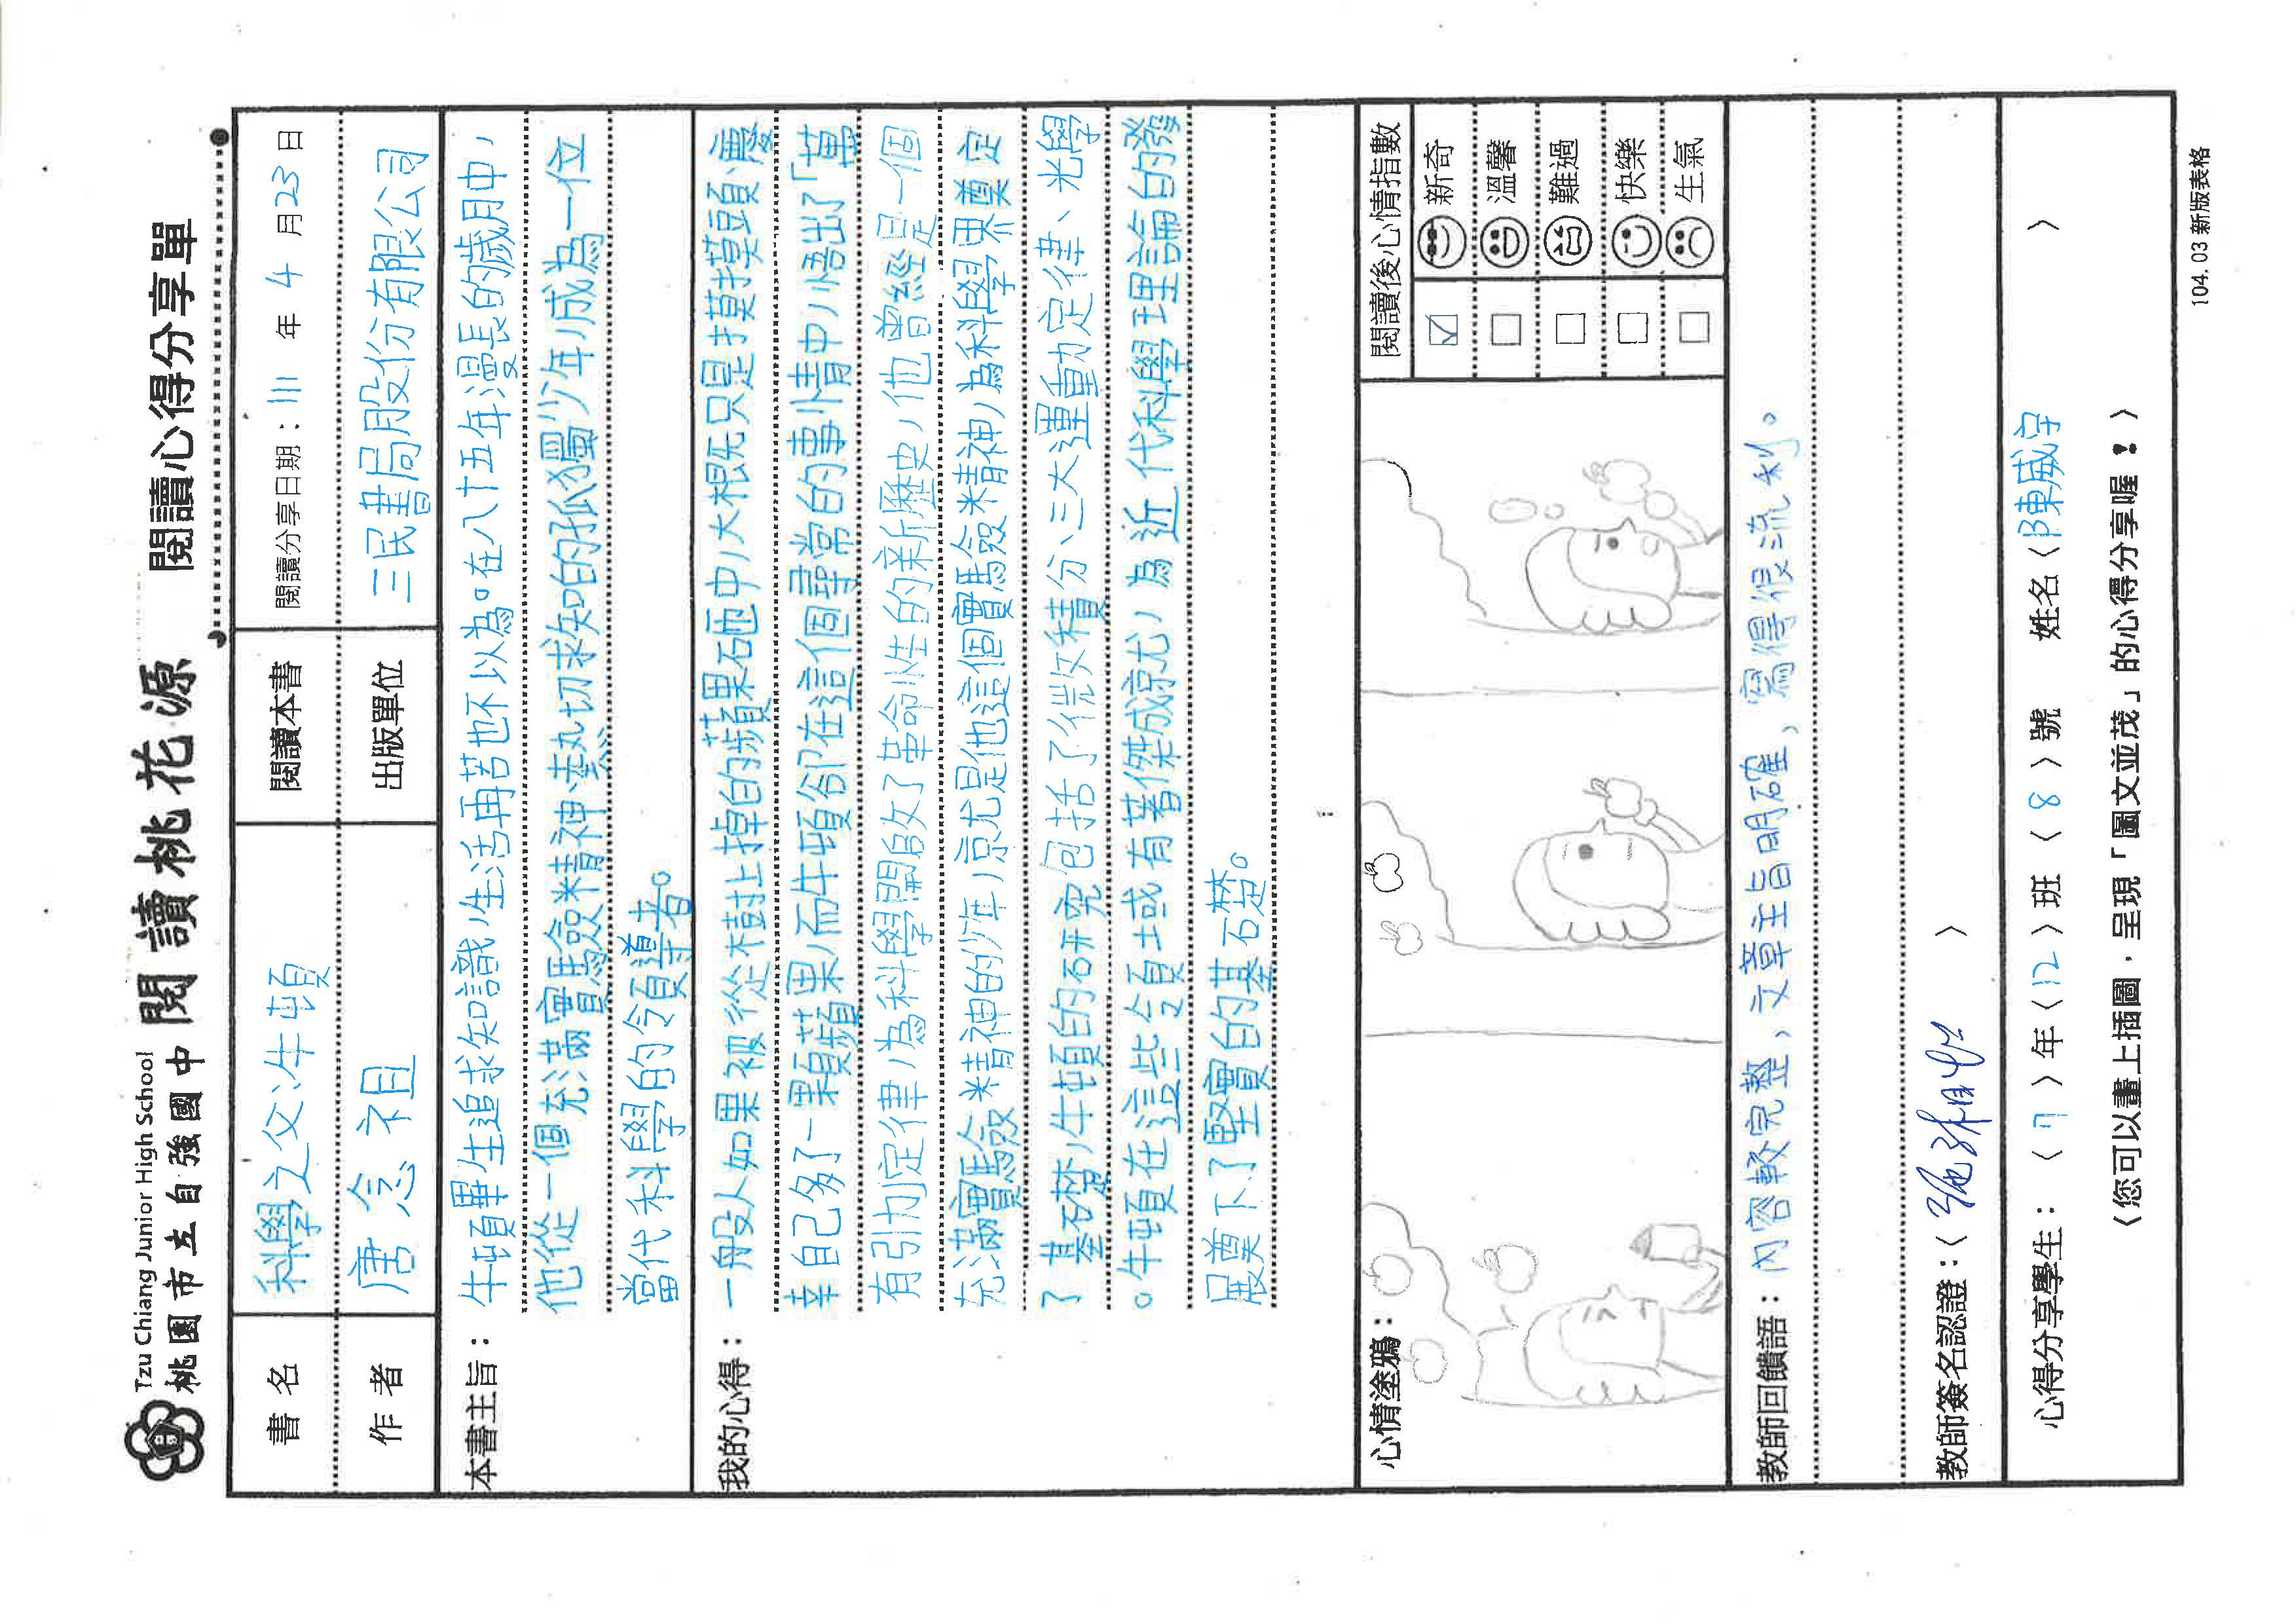 Tzu Chiang Junior High School
桃園市立自強國中 閱讀桃花源 閱讀心得分享單
書名 科學之父:牛頓 閱讀本書 閱讀分享日期：111年4月23日
作者 唐念祖 出版單位 三民書局股份有限公司
本書主旨：
牛頓畢生追求知識，生活再苦也不以為。在八十五年漫長的歲月中，
他從一個充滿實驗精神、熱切求知的孤獨少年，成為一位
當代科學的領導者。
我的心得：
一般人如果被從樹上掉的蘋果砸中，大概只是摸摸頭，慶
幸自己多了一顆蘋果，而牛頓卻在這個尋常的事情中，悟出了「萬
有引力」定律，為科學開啟了革命性的新歷史，他曾經是一個
充滿實驗精神的少年，京尤是他這個實驗精神，為科學界奠定
了基石楚，牛頓的研究包括了微積分、三大運動定律、光學
。牛頓在這些領域有著傑成京尤，為近代科學理論的發
展奠下了堅實的基石楚。
心情塗鴉：
閱讀後心情指數
新奇
溫馨
難過
快樂
生氣
教師回饋語：內容較完整，文章主旨明確，寫得很流利。
教師簽名認證：〈 〉
心得分享學生：〈7〉年〈12〉班〈8〉號 姓名〈陳威宇 〉
〈您可以畫上插圖，呈現「圖文並茂」的心得分享喔！〉
104.03 新版表格